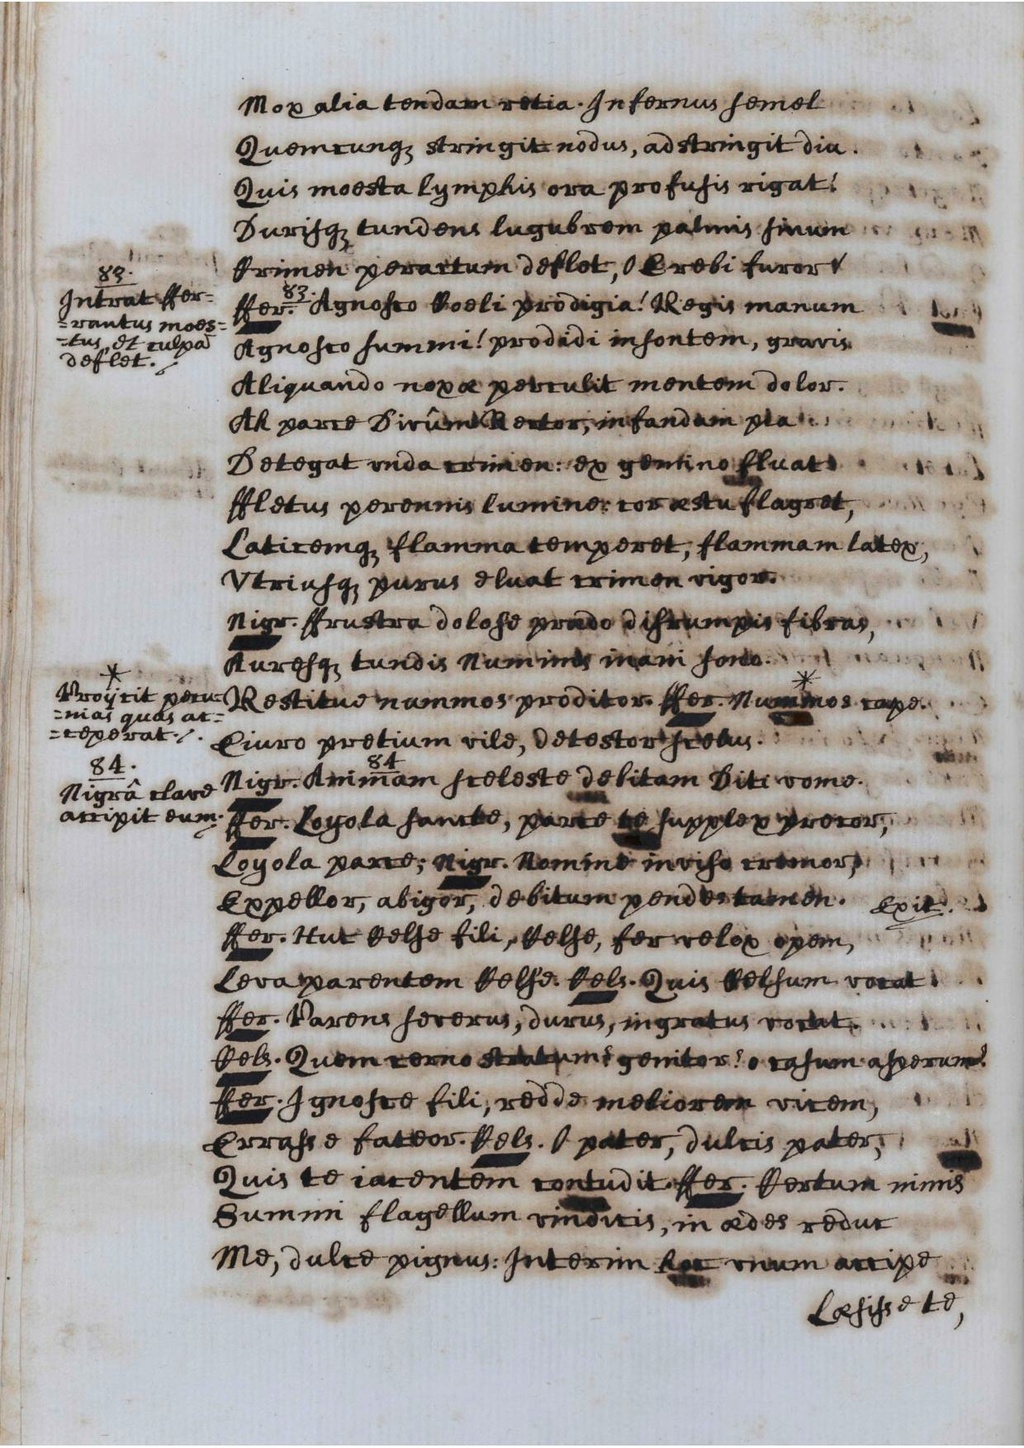 Mox alia tendam retia. Infernus semel
Quemcunq; stringit nodus, adstringit diu.
Quis moesta lymphis ora profusis rigat!
Durisq; tundens lugubrem palmis sinum
Crimen peractum deflet, O Erebi furor!
83.
Intrat ffer=
=rantus moes=
=tus, et culpa
deflet.
83.
ffer. Agnosco Coeli prodigia! Regis manum
Agnosco summi! prodidi insontem, gravis
Aliquando noxæ perculit mentem dolor.
Ah parce Divûm Rector, infandam pia
Detegat vnda crimen: ex gemino fluat
ffletus perennis lumine: cor æstu flagret,
Laticemq; flamma temperet, flammam latex,
Vtriusq; purus eluat crimen vigor.
Nigr. ffrustra dolose prædo disrumpis fibras,
Auresq; tundis Numinis inani sono.
*
Proijcit pecu=
=nias quas ac=
=ceperat.
Restitue nummos proditor. ffer. Nummos cape. *
Eiuro pretium vile, detestor scelus.
84.
Nigrâ clave
accipit eum.
84
Nigr. Animam sceleste debitam Diti vome.
ffer. Loyola sancte, parce te supplex precor,
Loyola parce; Nigr. Nomine inviso cremor,
Expellor, abigor, debitum pendes tamen. Exit.
ffer. Huc Celse fili, Celse, fer velox opem,
Leva parentem Celse. Cels. Quis Celsum vocat
ffer. Parens severus, durus, ingratus vocat.
Cels. Quem cerno stratum? genitor? o casum asperum!
ffer. Ignosce fili, redde meliorem vicem,
Errasse fateor. Cels. O pater, dulcis pater,
Quis te iacentem contudit. ffer. Certum nimis
Summi flagellum vindicis, in ædes reduc
Me, dulce pignus: Interim hoc vnum accipe
Læsisse te,